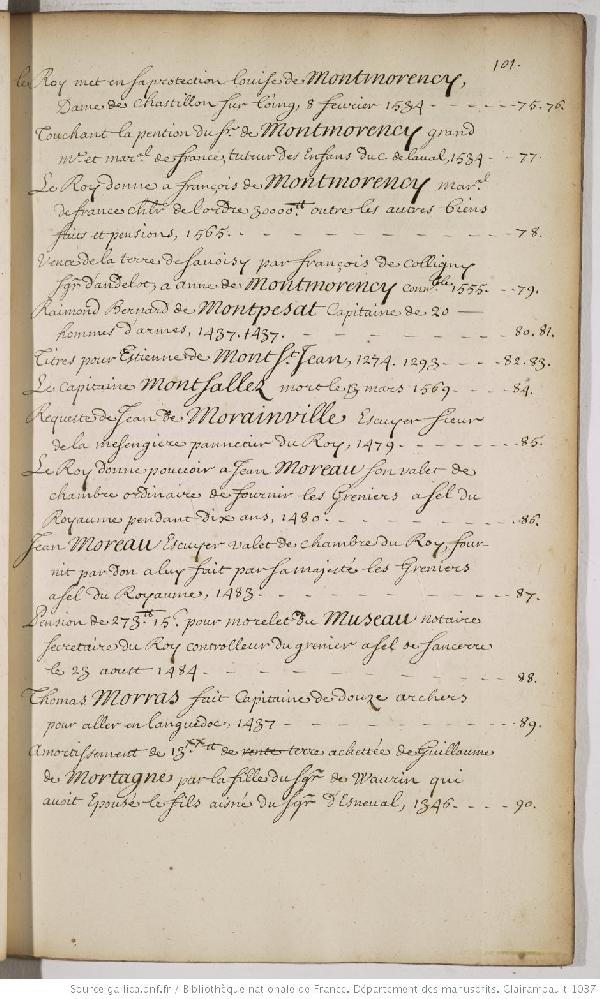 101.
le Roy met en sa protection louise de Montmorency,
Dame de Chastillon sur loing, 8 fevrier 1534 - - - - - 75. 76.
Touchant la pention du sr. de Montmorency grand
me. et mar.al de france, tuteur des Enfans du C. de laval, 1534 - - 77.
Le Roy donne a françois de Montmorency mar.al
de france chlr de l'ordre 30000.tt outre les autres biens
faits et pensions, 1565. - - - - - - - - - 78.
Vente de la terre de Savoisy par françois de Colligny
sgr d'andelot, a anne de Montmorency conn.ble 1555 - - 79.
Raimond Bernard de Montpesat Capitaine de 20 —
hommes d'armes, 1437. 1437. - - - - - - - 80. 81.
Titres pour Estienne de Mont St. Jean, 1274. 1293 - - - - 82. 83.
Le Capitaine Montsallez mort le 13 mars 1569 - - - - 84.
Requeste de Jean de Morainville Escuyer sieur
de la mesengiere pannetier du Roy, 1479 - - - - - - - 85.
Le Roy donne pouvoir a Jean Moreau son valet de
chambre ordinaire de fournir les Greniers a sel du
Royaume pendant dix ans, 1480. - - - - - - - - 86.
Jean Moreau Escuyer valet de chambre du Roy, four-
nit par don a luy fait par sa majesté les Greniers
a sel du Royaume, 1483 - - - - - - - - - - 87.
Pension de 273.tt 15.s pour morelet du Museau notaire
secretaire du Roy controlleur du grenier a sel de sancerre
le 23 aoust 1484 - - - - - - - - - - 88.
Thomas Morras fait Capitaine de douze archers
pour aller en languedoc, 1437 - - - - - - - - 89.
Amortissement de 13.tt de rente terre achettée de Guillaume
de Mortagne par la fille du sgr de Waurin qui
avoit Epousé le fils aisné du sgr D'Esneval, 1346 - - - - 90.
Source gallica.bnf.fr / Bibliothèque nationale de France. Département des manuscrits. Clairambault 1037